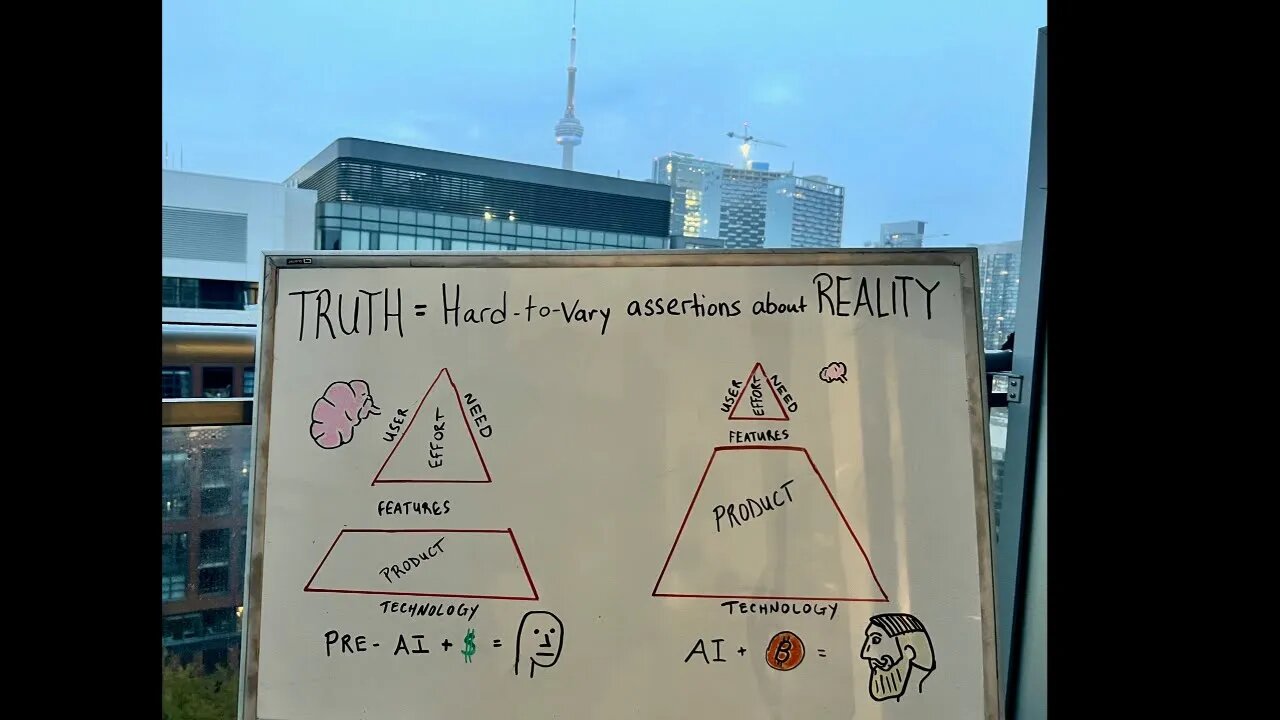 TRUTH = Hard-to-Vary assertions about REALITY
USER
EFFORT
NEED
FEATURES
PRODUCT
TECHNOLOGY
PRE-AI + $ =
USER
EFFORT
NEED
FEATURES
PRODUCT
TECHNOLOGY
AI + ₿ =